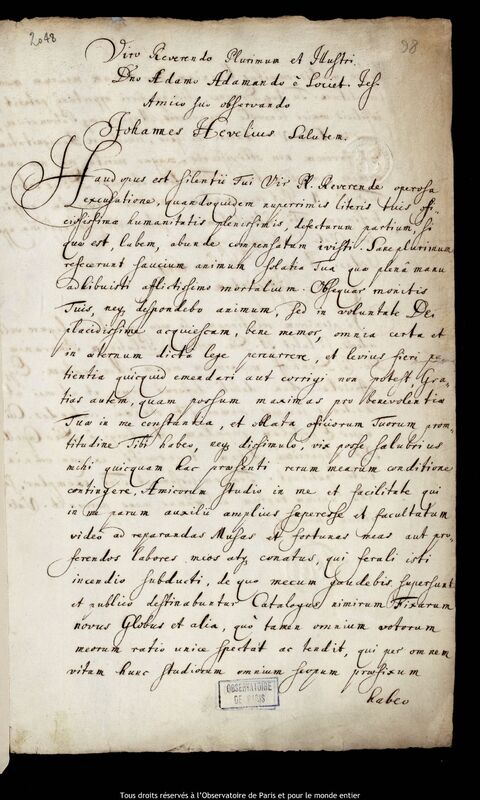 2048
98
Viro Reverendo Plurimum et Illustri
Dno Adamo Adamando è Societ. Jes.
Amico suo observando
Johannes Hevelius Salutem.
Haud opus est silentii Tui Vir Pl. Reverende operosa
excusatione, quandoquidem nuperrimis literis tuis offi-
ciosissima humanitatis plenissimis, defectum partium, si
qua est, lubem, abunde compensatum ivisti. Sane plurimum
refecerunt saucium animum solatia Tua quæ plenâ manu
adhibuisti afflictissimo mortalium. Obsequar monitis
Tuis, neq; despondebo animum, sed in voluntate Dei
placidissime acquiescam, bene memor, omnia certa et
in æternum dicta lege percurrere, et levius fieri pa-
tientia quicquid emendari aut corrigi non potest. Gra-
tias autem, quam possum maximas pro benevolentia
Tua in me constantia, et oblata officiorum Tuorum prom-
titudine Tibi habeo, neq; dissimulo, vix posse salubrius
mihi quicquam hac præsenti rerum mearum conditione
contingere, Amicorum studio in me et facilitate qui
in me parum auxilii amplius superesse et facultatum
video ad reparandas Musas et fortunas meas aut pro-
ferendos labores meos atq; conatus, qui ferali isti
incendio subducti, de quo mecum gaudebis supersunt
et publico destinabuntur Catalogus nimirum Fixarum
novus Globus et alia, quò tamen omnium votorum
meorum ratio unice spectat ac tendit, qui per omnem
vitam hunc studiorum omnium scopum præfixum
habeo
OBSERVATOIRE
DE PARIS
Tous droits réservés à l'Observatoire de Paris et pour le monde entier